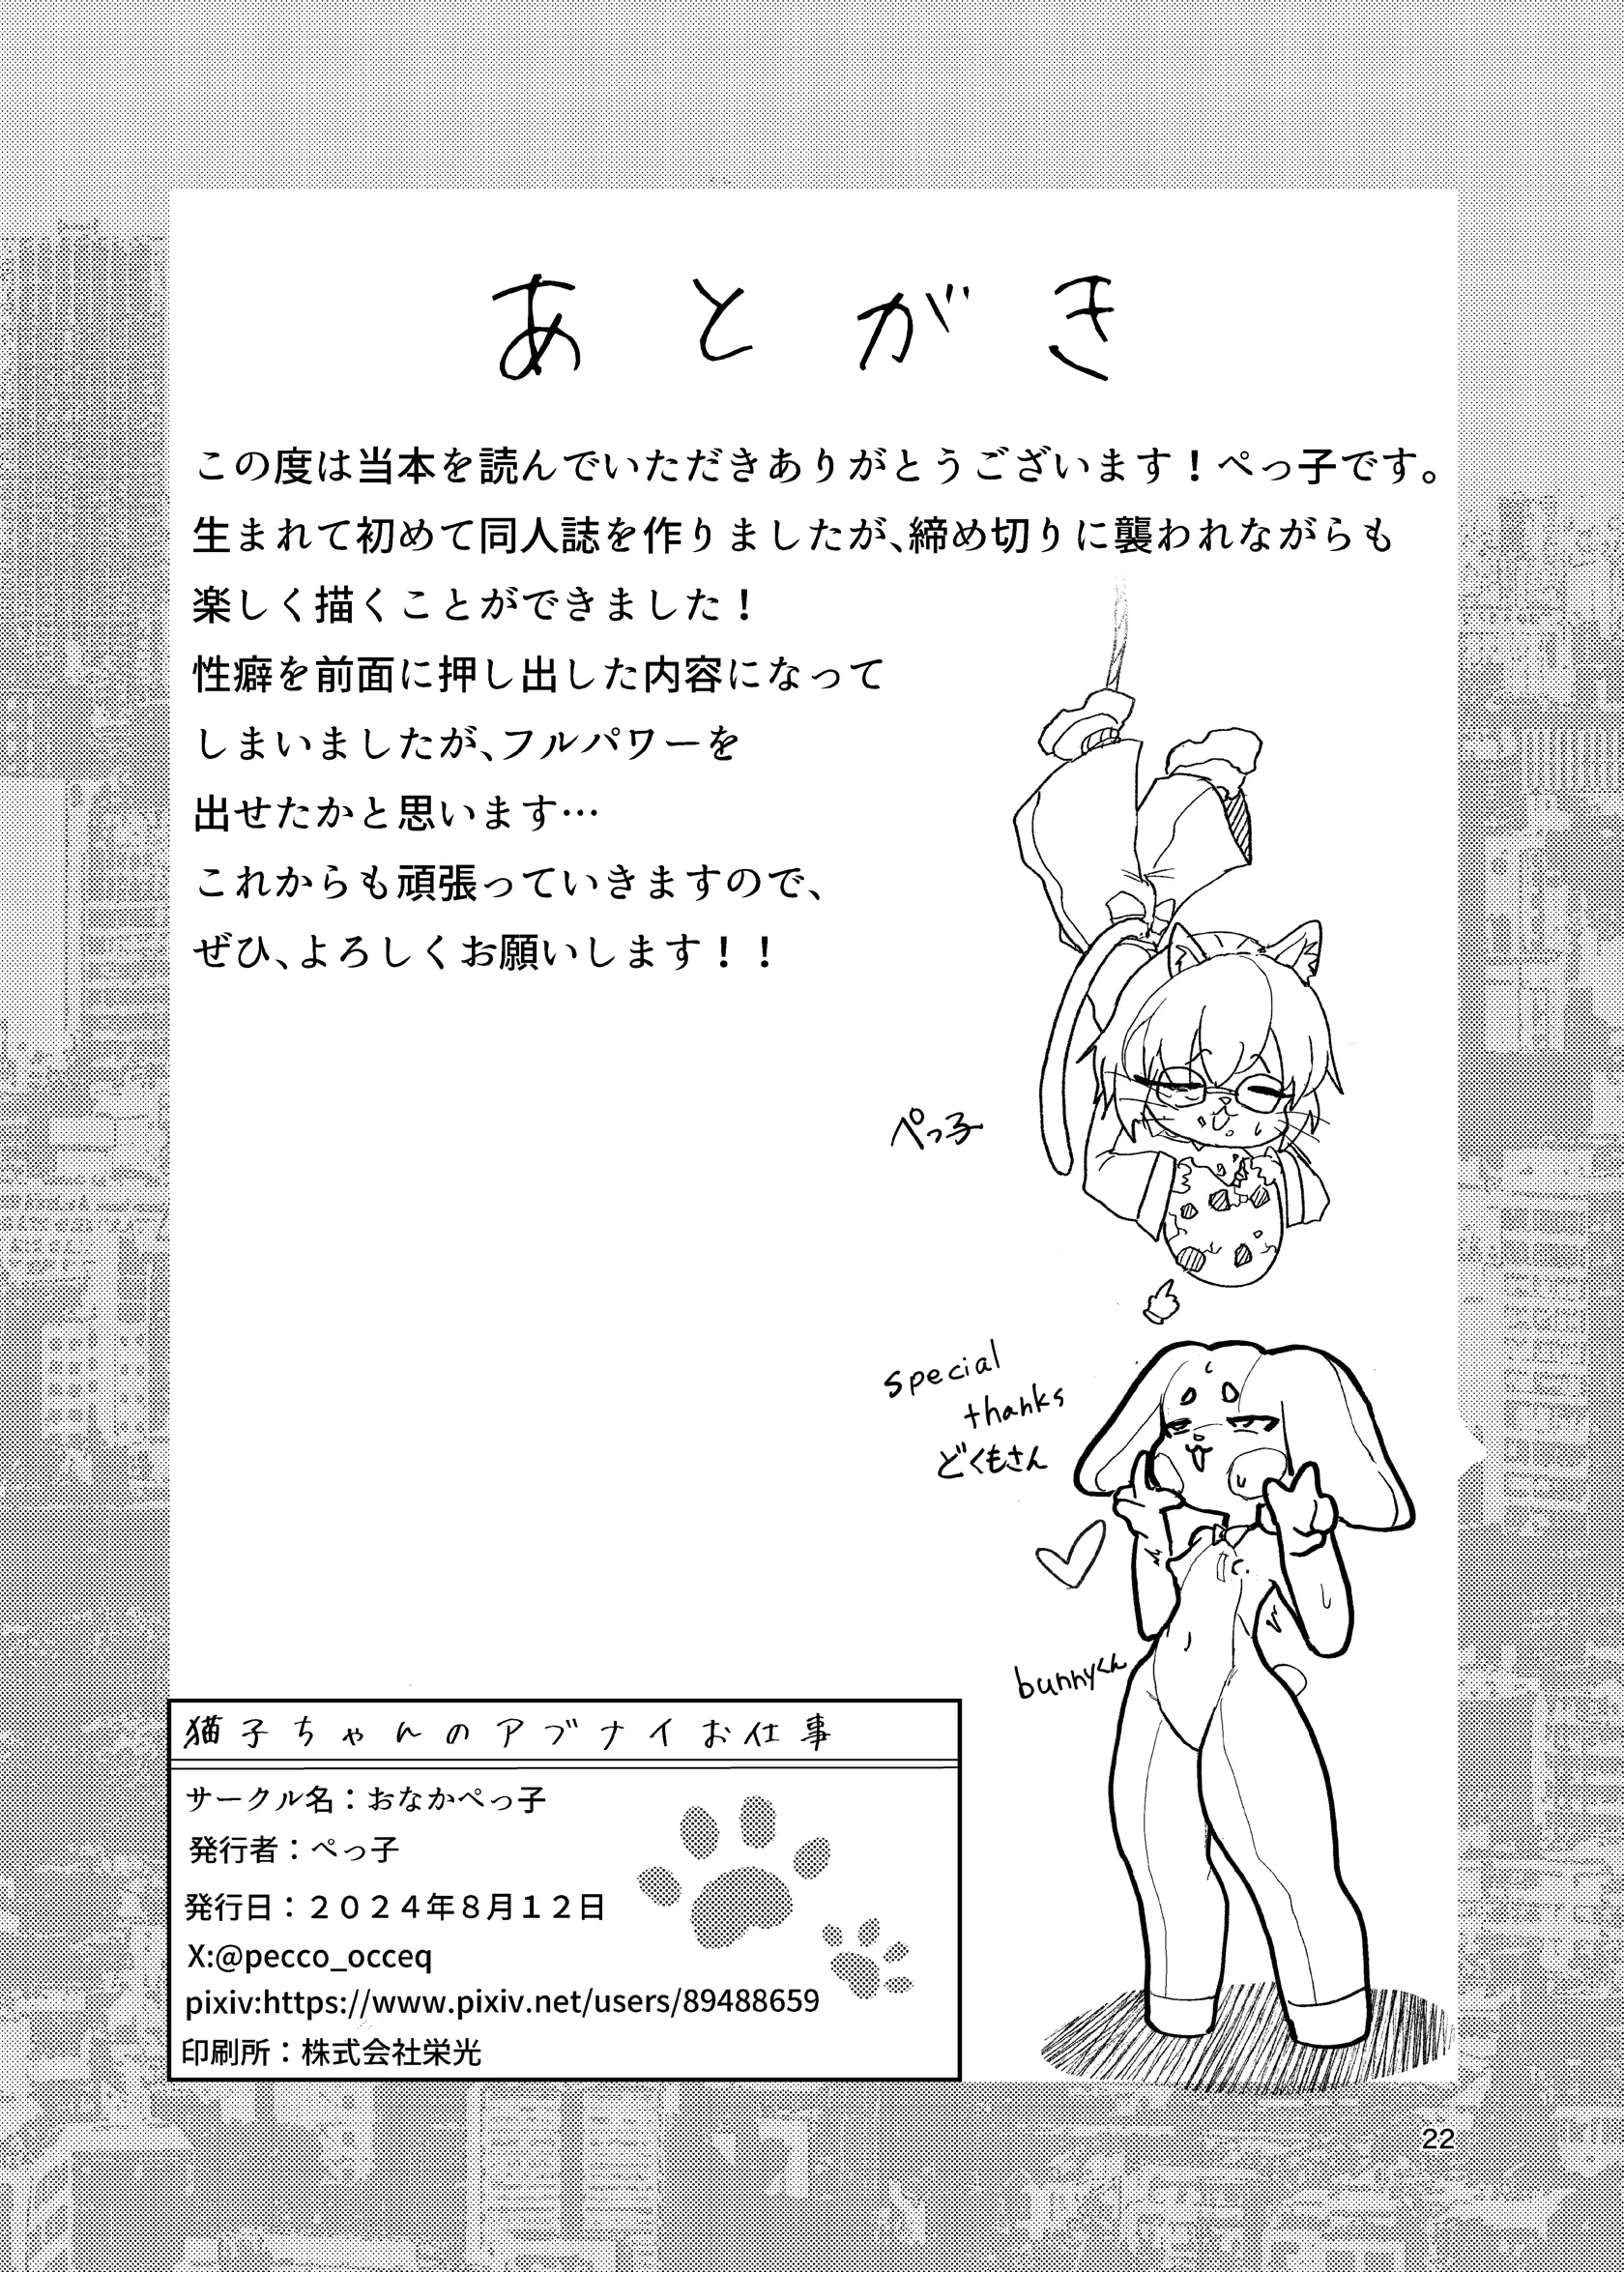 あとがき
この度は当本を読んでいただきありがとうございます！ぺっ子です。
生まれて初めて同人誌を作りましたが、締め切りに襲われながらも
楽しく描くことができました！
性癖を前面に押し出した内容になって
しまいましたが、フルパワーを
出せたかと思います…
これからも頑張っていきますので、
ぜひ、よろしくお願いします！！
ぺっ子
special
thanks
どくもさん
bunnyくん
猫子ちゃんのアブナイお仕事
サークル名：おなかぺっ子
発行者：ぺっ子
発行日：２０２４年８月１２日
X:@pecco_occeq
pixiv:https://www.pixiv.net/users/89488659
印刷所：株式会社栄光
22